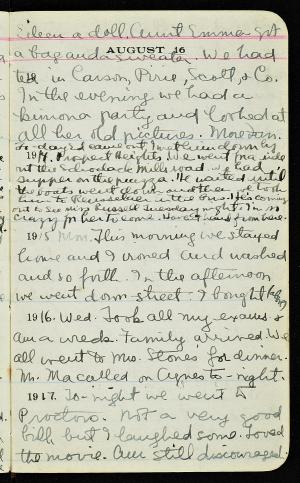 Eileen a doll, Aunt Emma got
a bag and a sweater. We had
AUGUST 16
tea in Carson, Pirie, Scott, & Co.
In the evening we had a
kimona party and looked at
all her old pictures.
1914. Prospect Heights. We went for ride
out the Schrodack Mills road. We had
supper on the piazza. He waited until
the boats went down and then we took
him to Rensselaer in the
out to see Miss Tuesday night. I'm so
crazy for her to come. from here.
1915 Mon. This morning we stayed
home and I ironed and washed
and so forth. In the afternoon
we went down street. I bought
1916. Wed. Took all my exams &
am a wreck. Family arrived. We
all went to Mrs. Stones for dinner.
Mr. Macalled on Agnes to-night.
1917. To-night we went to
Proctors. Not a very good
bill but I laughed some. Loved
the movie. Am still discouraged.